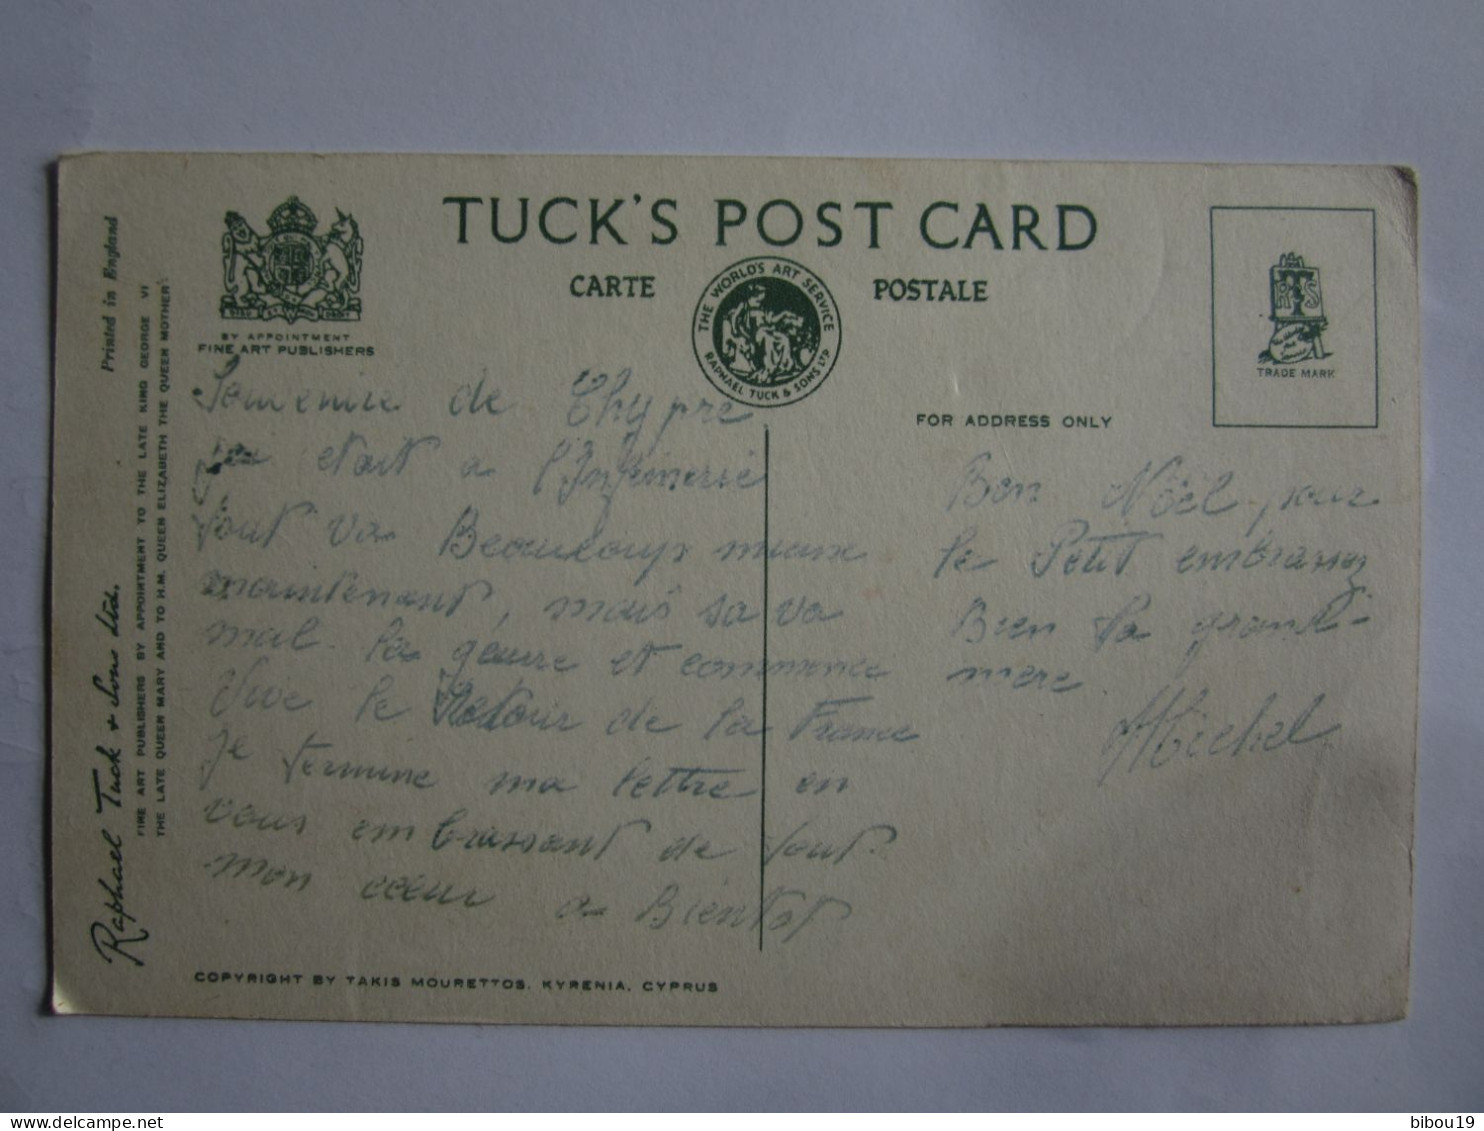 TUCK'S POST CARD
CARTE POSTALE
THE WORLD'S ART SERVICE
RAPHAEL TUCK & SONS LTD
BY APPOINTMENT
FINE ART PUBLISHERS
TRADE MARK
FOR ADDRESS ONLY
Printed in England
FINE ART PUBLISHERS BY APPOINTMENT TO THE LATE KING GEORGE VI
THE LATE QUEEN MARY AND TO H.M. QUEEN ELIZABETH THE QUEEN MOTHER
Raphael Tuck & Sons Ltd.
Souvenir de Chypre
etait a l'Infirmerie
tout va Beaucoup mieux
maintenant, mais sa va
mal. la geurre et commence
Vive le Retour de la France
Je termine ma lettre en
vous embrassant de tout
mon coeur a Bientot
Bon Nöel pour
le Petit embrassez
Bien la grand-
mere
Michel
COPYRIGHT BY TAKIS MOURETTOS, KYRENIA, CYPRUS
bibou19